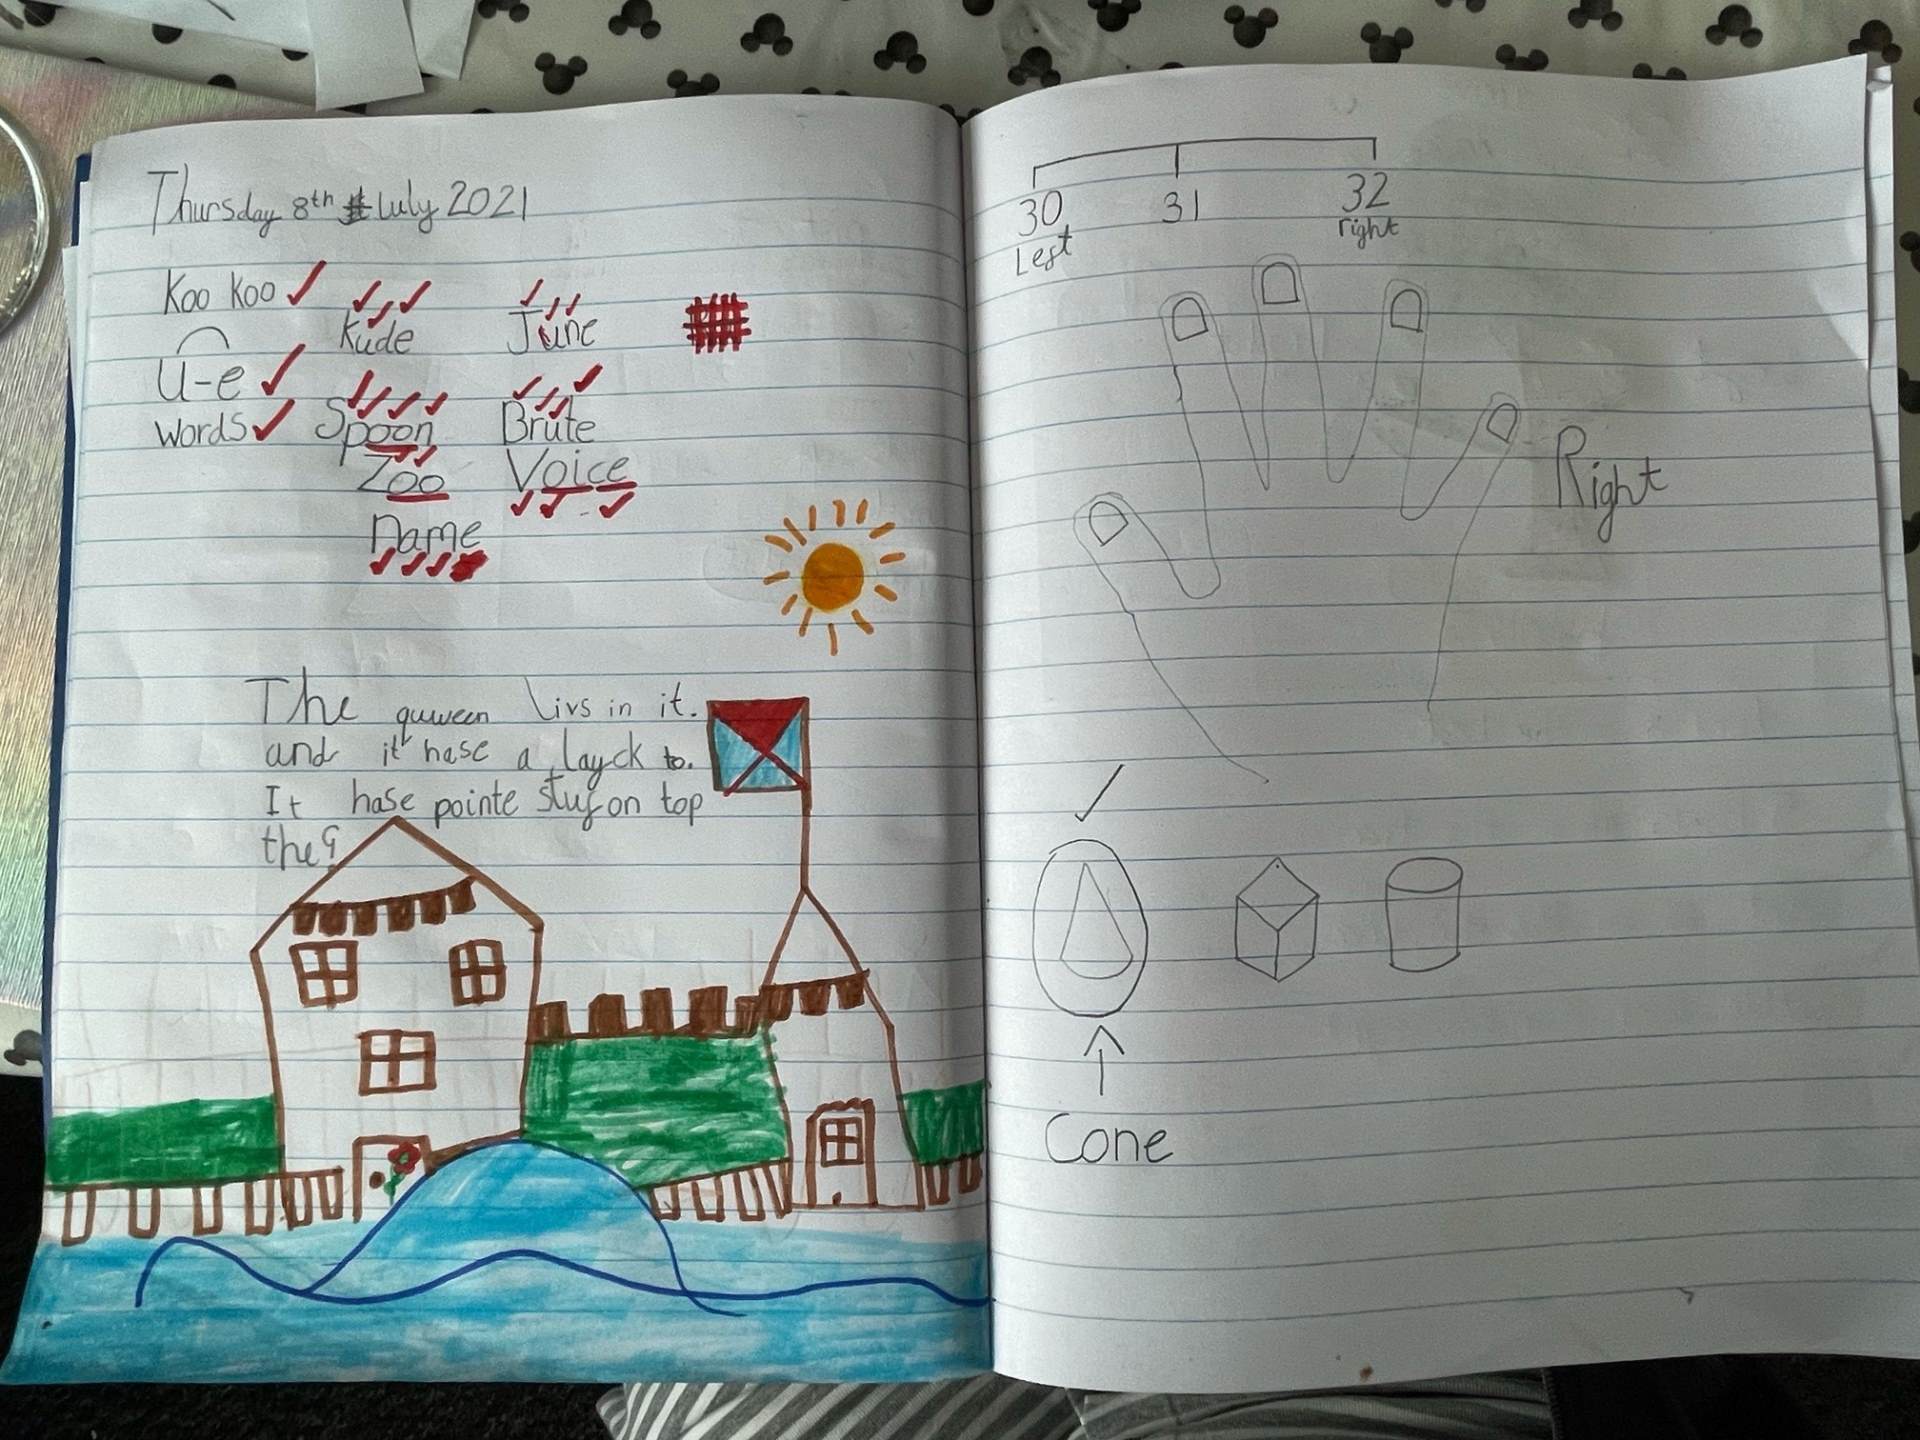 Thursday 8th July 2021
Koo Koo
Kude
June
U-e
words
Spoon
Brute
Zoo
Voice
Name
The quween livs in it.
and it hase a layck to.
It hase pointe stuf on top
the?
30 31 32
Left right
Right
Cone